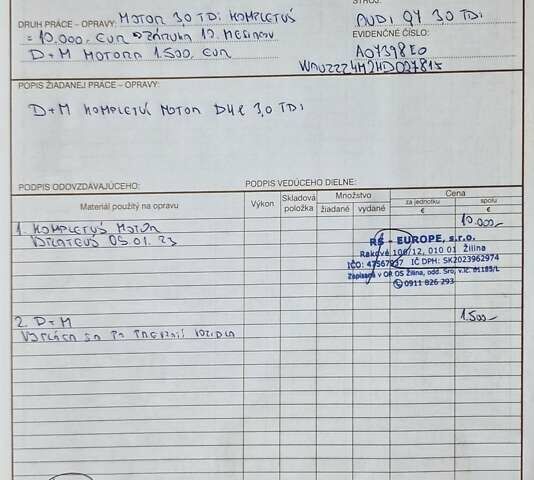 STROJ:
DRUH PRÁCE - OPRAVY: MOTOR 3,0 TDI KOMPLETNÝ
AUDI Q7 3.0 TDI
= 10.000, EUR ZÁRUKA 12 MESIACOV
EVIDENČNÉ ČÍSLO:
D+M MOTORA 1.500, EUR
POPIS ŽIADANEJ PRÁCE - OPRAVY:
D+M KOMPLETNÝ MOTOR 3,0 TDI
PODPIS ODOVZDÁVAJÚCEHO:
PODPIS VEDÚCEHO DIELNE:
Materiál použitý na opravu
Výkon
Skladová položka
Množstvo
žiadané
vydané
Cena
za jednotku €
spolu €
1. KOMPLETNÝ MOTOR
10 000,-
05.01.23
RS - EUROPE, s.r.o.
Rakové 106/12, 010 01 Žilina
IČO: 47567937 IČ DPH: SK2023962974
Zapísaná v OR OS Žilina, odd. Sro, v.č. 61185/L
0911 826 293
2. D+M
1.500,-